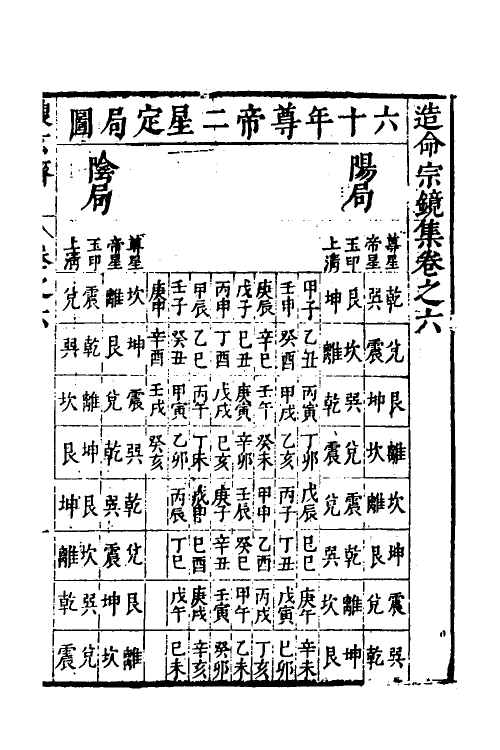 造命宗鏡集卷之六
六十年尊帝二星定局圖
陽局
尊星 乾 兌 艮 離 坎 坤 震 巽
帝星 巽 震 坤 坎 離 艮 兌 乾
玉印 艮 坎 巽 兌 震 乾 離 坤
上清 坤 離 乾 震 兌 巽 坎 艮
甲子 乙丑 丙寅 丁卯 戊辰 己巳 庚午 辛未
壬申 癸酉 甲戌 乙亥 丙子 丁丑 戊寅 己卯
庚辰 辛巳 壬午 癸未 甲申 乙酉 丙戌 丁亥
戊子 己丑 庚寅 辛卯 壬辰 癸巳 甲午 乙未
丙申 丁酉 戊戌 己亥 庚子 辛丑 壬寅 癸卯
甲辰 乙巳 丙午 丁未 戊申 己酉 庚戌 辛亥
壬子 癸丑 甲寅 乙卯 丙辰 丁巳 戊午 己未
庚申 辛酉 壬戌 癸亥
陰局
尊星 坎 坤 震 巽 乾 兌 艮 離
帝星 離 艮 兌 乾 巽 震 坤 坎
玉印 震 乾 離 坤 艮 坎 巽 兌
上清 兌 巽 坎 艮 坤 離 乾 震
卷之六